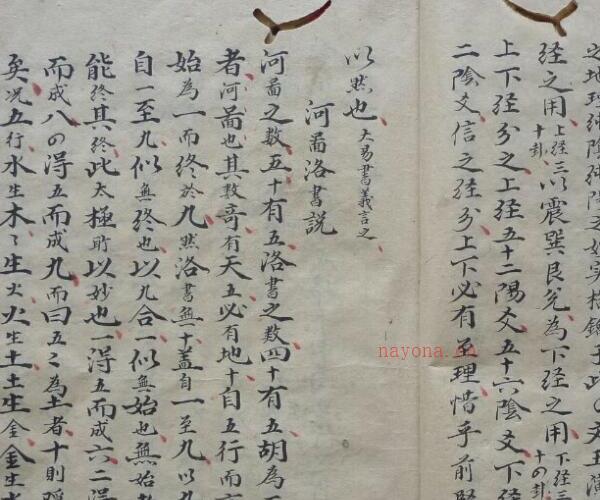 之地理純陰純陽之始实
経之用上経三以震巽艮兌為下経之用下経三
十卦十の卦
上下経分之上経五十二陽爻五十六陰爻下経
二陰爻信之経分上下必有至理惜乎前賢
以然也大易書義言之
河啚洛書説
河啚之数五十有五洛書之数四十有五胡為
者河啚也其数竒有天五必有地十自五行而
始為一而終於九然洛書無十蓋自一至九以九
自一至九似無終也以九合一似無始也無始
能終其終此太極所以妙也一得五而成六二得
而成八の得五而成九而曰五〻為土者十則
矣况五行水生木〻生火火生土土生金金生水
nayona.cn